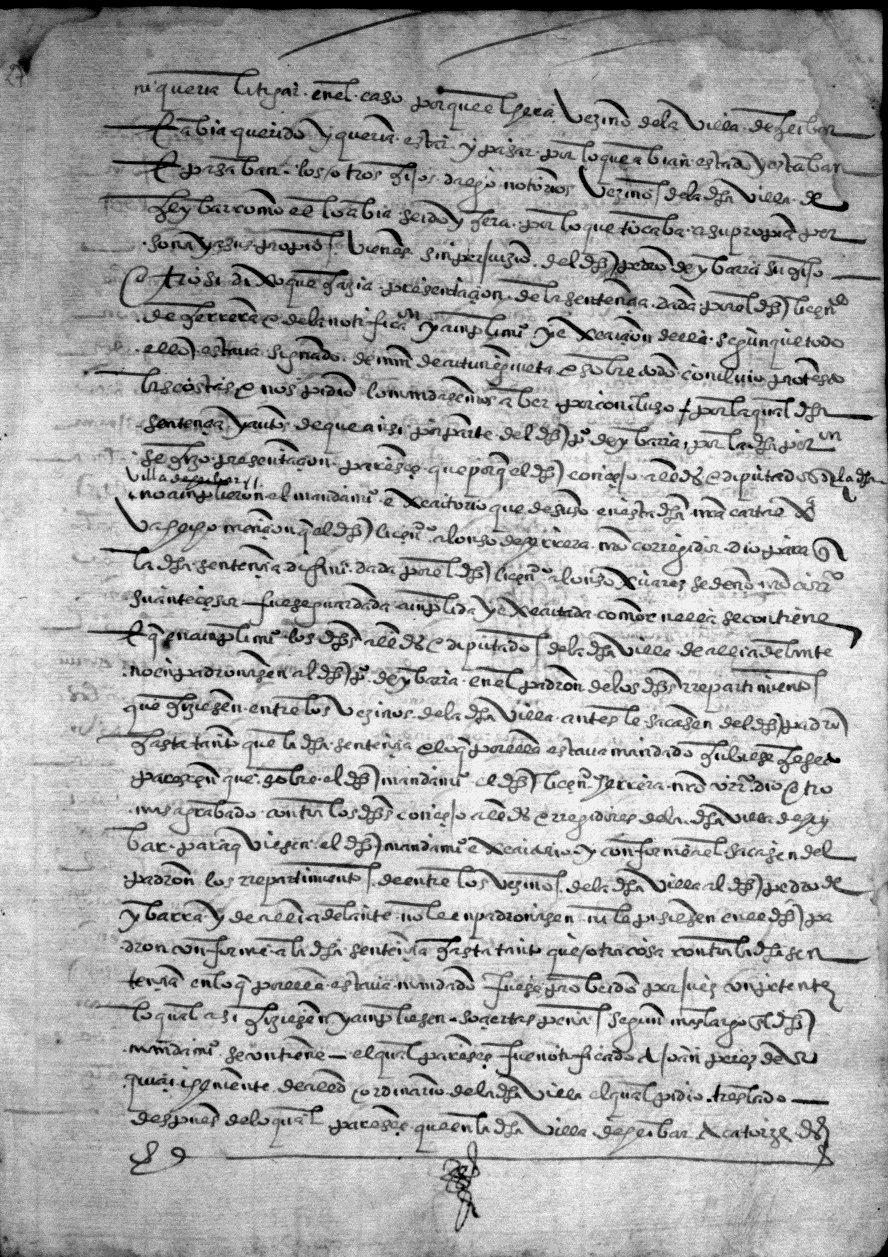 ni queria litigar en el caso porque el hera vezino dela villa de heibar
E abia querido y queria estar y pasar por lo que abian estado y estaban
E pasaban los otros hijos dalgo notorios vezinos dela dha villa de
heybar como el lo abia seido y hera por lo que tocaba a su propia per
sona y a sus propios vienes sin perjuizio del dho pedro de ybarra su hijo
Otrosi dixo que hazia presentaçion dela sentençia dada por el dho liçençdo
de herrera e dela notificaon y cumplimio y execuçion della segun que todo
ello estava signado de mrn de cutunegueta e sobre todo concluio protesto
las costas e nos pidio lo mandasemos aber por concluso + por la qual dha
sentençia y autos de que ansi por parte del dho po de ybarra por la dha peron
se hizo presentaçon paresçe que porq el dho conçejo alldes e diputados dela dha
villa de heybar
no cumplieron el mandamio executorio que de suso en esta dha nra carta de
va hecho mençion q el dho liçendo alonso de herrera nro corregidor dio para q
la dha sentençia difini dada por el dho liçendo alonso xuarez sedeño nro corror
su anteçesor fuese guardada cumplida y executada como en ella se contiene
E q en cumplimio los dhos alldes e diputados dela dha villa de alli adelante
no enpadronasen al dho po de ybarra en el padron de los dhos rrepartimientos
que hiziesen entre los vezinos dela dha villa antes le sacasen del dho padron
hasta tanto que la dha sentençia e lo q por ella estava mandado hubiese hefeto
paresçen que sobre el dho mandamio el dho liçendo herrera nro corror dio otro
mas agrabado contra los dhos conçejo alldes e rregidores dela dha villa de hey
bar para q viesen el dho mandamio executorio y conforme a el sacasen del
padron los rrepartimientos de entre los vezinos dela dha villa al dho pedro de
ybarra y de alli adelante no le enpadronasen ni le pusiesen en el dho pa
dron conforme a la dha sentençia hasta tanto que otra cosa contra la dha sen
tençia en lo q por ella estava mandado fuese probeido por juez conpetente
lo qual asi hiziesen y cumpliesen so çiertas penas segun mas largo en el dho
mandamio se contiene el qual paresçe fue notificado a joan perez de
teniente de allde ordinario dela dha villa el qual pidio treslado
despues delo qual paresçe que en la dha villa de heibar a catorze de